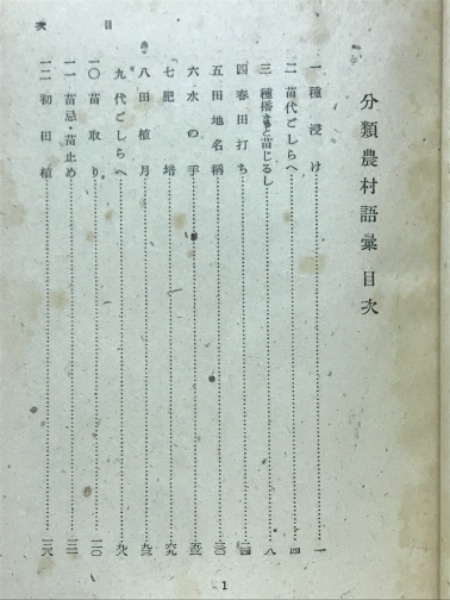 分類農村語彙 目次
一 種浸け 一
二 苗代ごしらへ 四
三 種播きと苗じるし 八
四 春田打ち
五 田地名稱
六 水の手
七 肥培
八 田植月
九 代ごしらへ
一〇 苗取り
一一 苗忌・苗止め
一二 初田植
目次
1